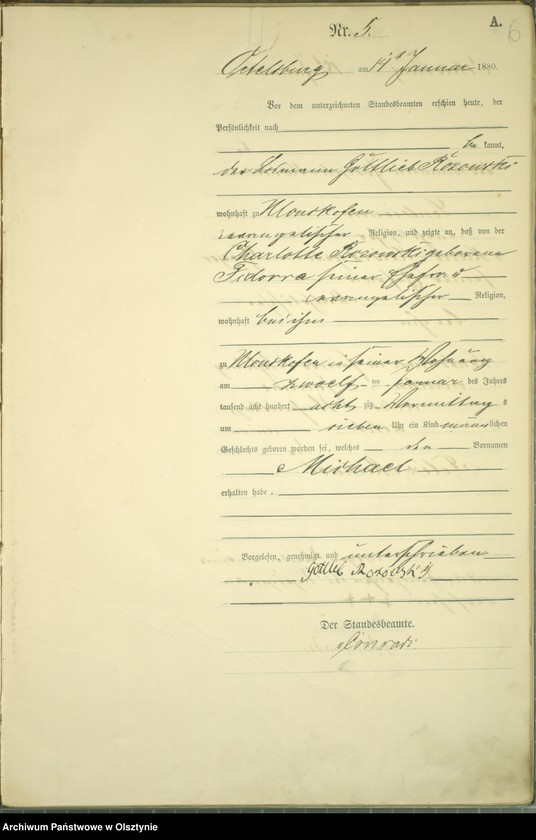 A.
6
Nr. 5.
Ortelsburg am 14 Januar 1880.
Vor dem unterzeichneten Standesbeamten erschien heute, der
Persönlichkeit nach
be kannt,
der Losmann Gottlieb Rozowski
wohnhaft zu
evangelischer Religion, und zeigte an, daß von der
Charlotte Rozowski geborene
Fidorra seiner Ehefrau
evangelischer Religion,
wohnhaft bei ihm
zu in seiner Wohnung
am zwoelf ten Januar des Jahres
tausend acht hundert acht zig Vormittags
um sieben Uhr ein Kind männlichen
Geschlechts geboren worden sei, welches den Vornamen
Michael
erhalten habe.
Vorgelesen, genehmigt und unterschrieben
Gottlieb Rozowsky
Der Standesbeamte.
Conradi.
Archiwum Państwowe w Olsztynie